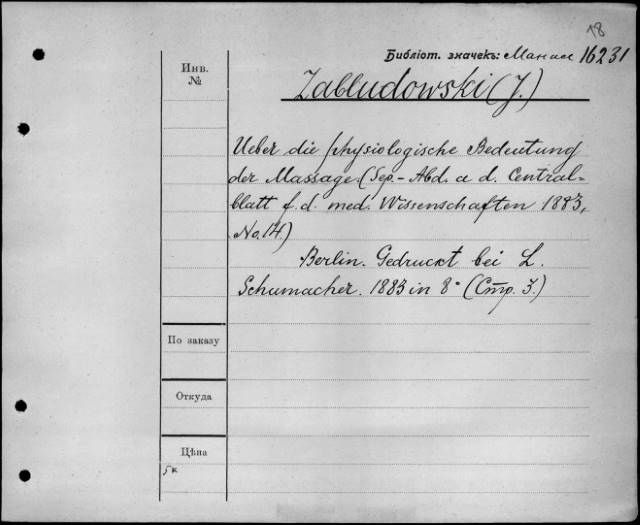 18
Библіот. значекъ: Манасс 16231
Инв.
№
Zabludowski (J.)
Ueber die physiologische Bedeutung
der Massage. (Sep.-Abd. a d. Central-
blatt f. d. med. Wissenschaften 1883,
No. 14)
Berlin. Gedruckt bei L.
Schumacher. 1883 in 8° (Стр. 3.)
По заказу
Откуда
Цѣна
5 к